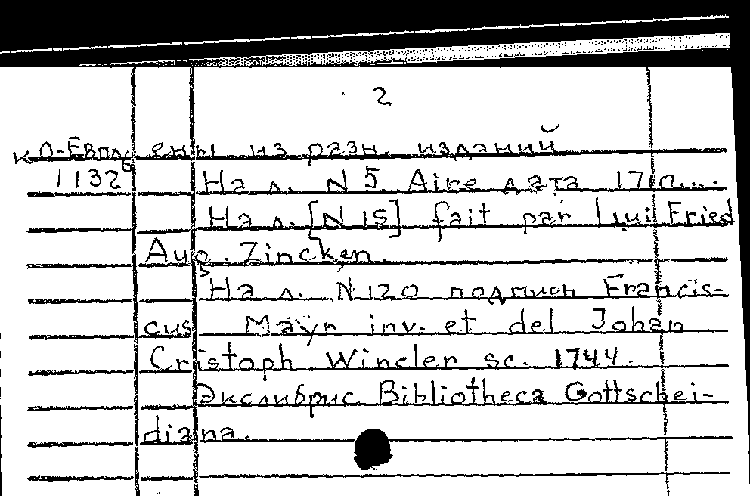 2
ко-Евпл ены из разн. изданий
1132б На л. N 5 Aire дата 17
На л. [N 15] fait par Lui Fried
Aug. Zincken.
На л. N120 подписи Francis-
cus Mayr inv. et del Johan
Cristoph Wincler sc. 1744.
Экслибрис Bibliotheca Gottschei-
diana.